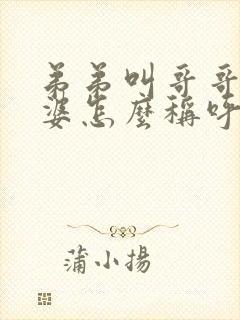 弟弟叫哥哥
婆怎麼稱呼
蒲小揚